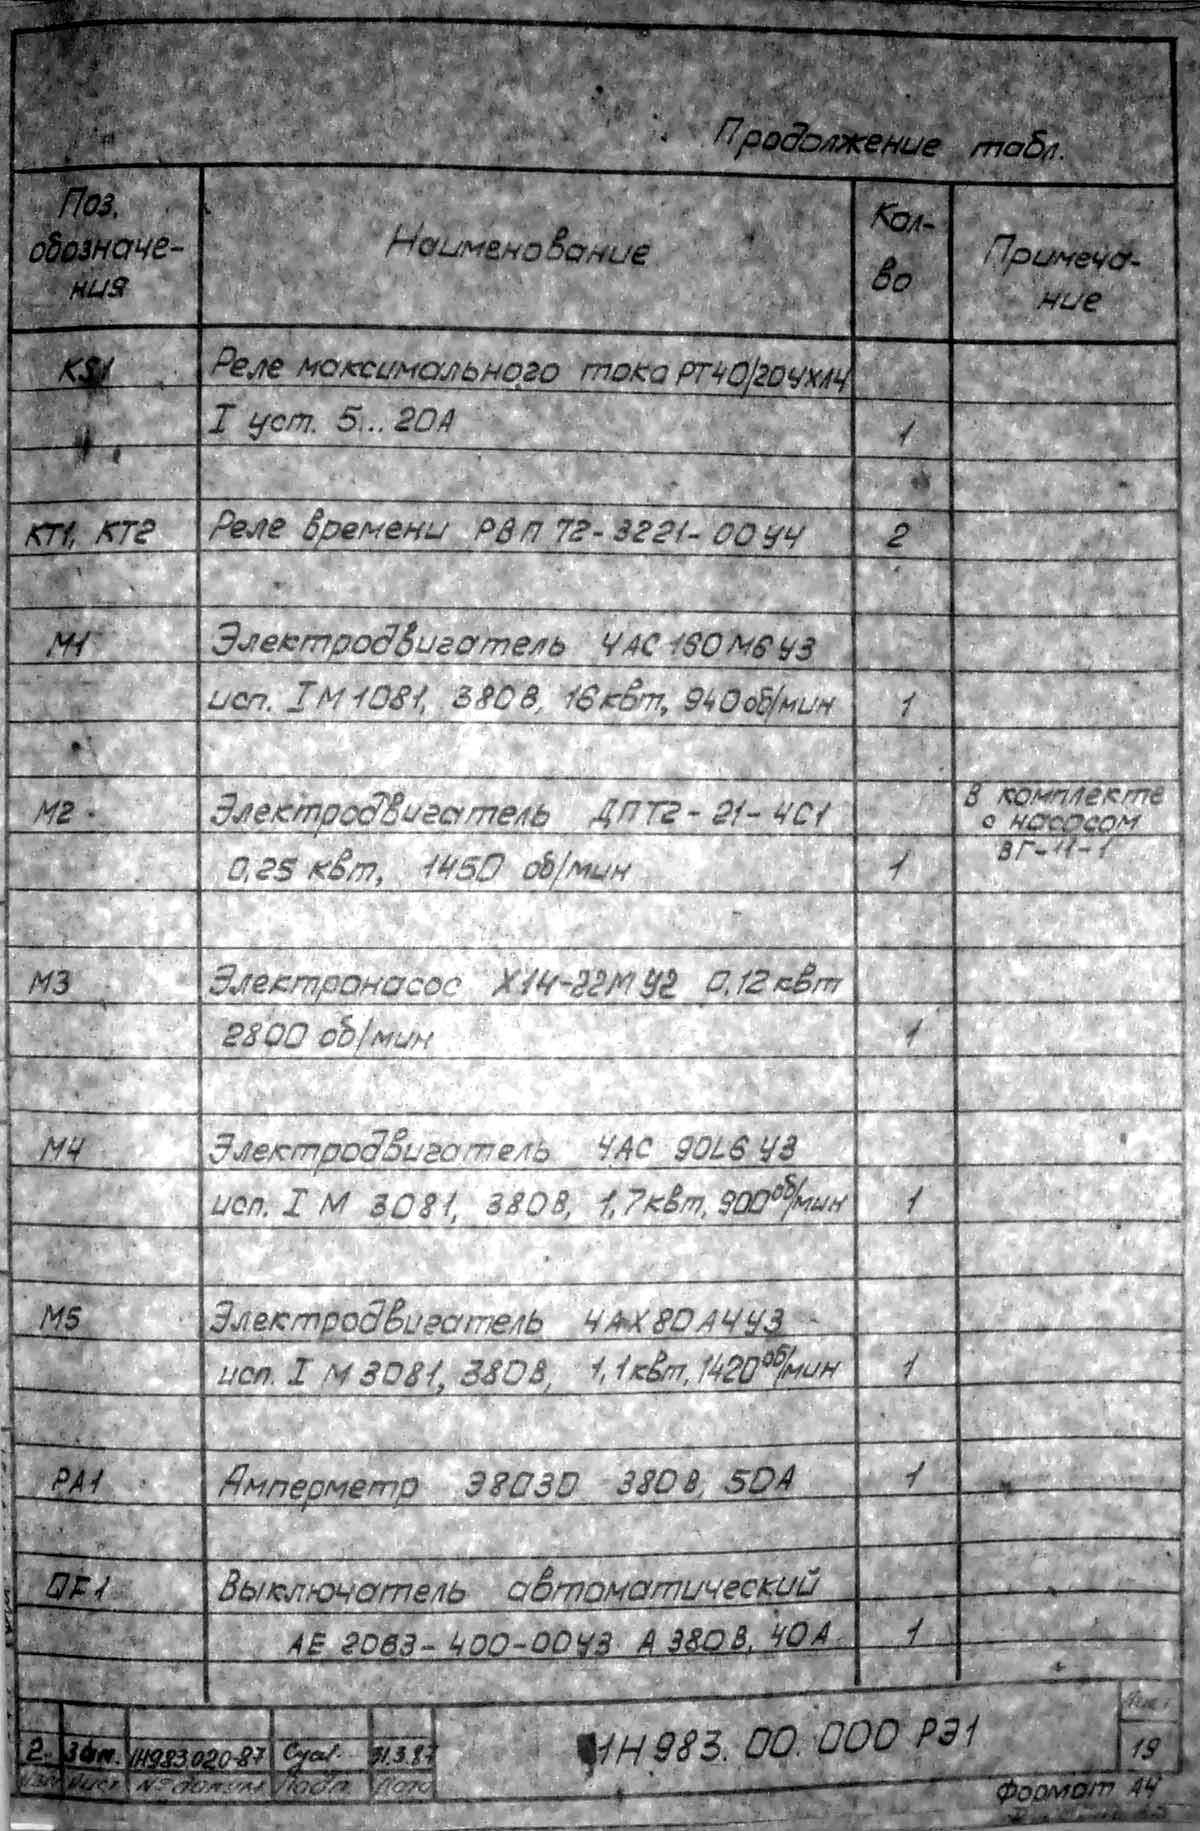 Продолжение табл.
Поз. обозначе- ния
Наименование
Кол- во
Примеча- ние
KS1 Реле максимального тока РТ40/20УХЛ4
I уст. 5...20А 1
КТ1, КТ2 Реле времени РВП 72-3221-00У4 2
М1 Электродвигатель 4АС 160М6У3
исп. IM1081, 380В, 16квт, 940об/мин 1
М2 Электродвигатель ДПТ2-21-4С1 В комплекте
с насосом
0,25 квт, 1450 об/мин 1 ВГ-11-1
М3 Электронасос Х14-22МУ2 0,12квт
2800 об/мин 1
М4 Электродвигатель 4АС 90L6У3
исп. IM 3081, 380В, 1,7квт, 900об/мин 1
М5 Электродвигатель 4АХ80А4У3
исп. IM3081, 380В, 1,1квт, 1420об/мин 1
РА1 Амперметр Э8030 380В, 50А 1
QF1 Выключатель автоматический
АЕ 2063-400-00У3 А 380В, 40А 1
1Н983.00.000 РЭ1
Лист
19
2. Зам. 1Н983.020-87 31.3.87
Изм Лист № докум Подп Дата
Формат А4